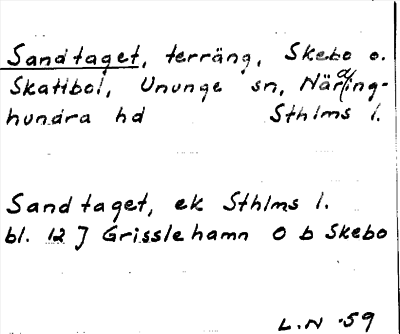 Sandtaget, terräng, Skebo o.
Skattbol, Ununge sn, Närding-
hundra hd Sthlms l.
Sandtaget, ek Sthlms l.
bl. 12 J Grisslehamn O b Skebo
L.N -59